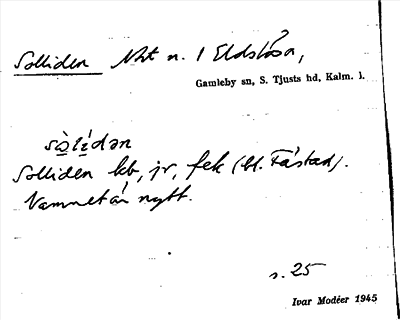 Solliden Nht n. 1 Eldslösa,
Gamleby sn, S. Tjusts hd, Kalm. l.
sòlídən
Solliden kb, jr, fek (bl. Fåstad).
Namnet är nytt.
s. 25
Ivar Modéer 1945